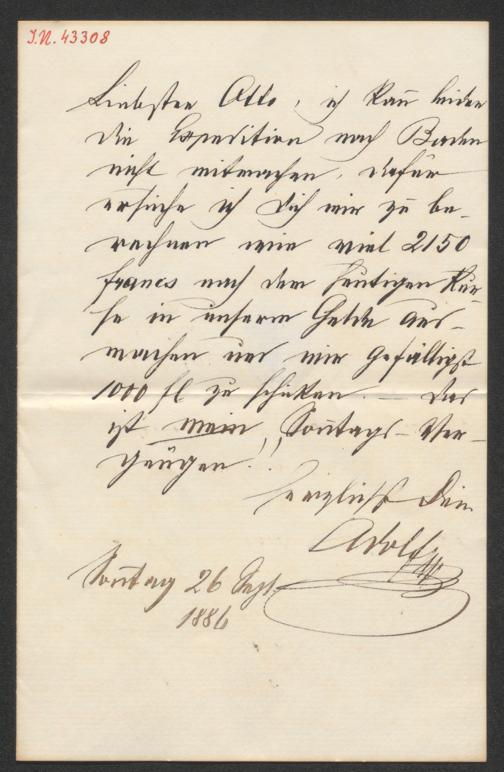 I.N. 43308
Liebster Otto, ich kan̄ leider
die Expedition nach Baden
nicht mitmachen, dafür
ersuche ich Dich mir zu be-
rechnen wie viel 2150
francs nach dem heutigen Kur-
se in unserm Gelde aus-
machen und mir gefälligst
1000 fl zu schicken. — Das
ist mein Son̄tags-Ver-
gnügen!!
herzlichst Dein
Adolf
Son̄tag 26 Sept.
1886